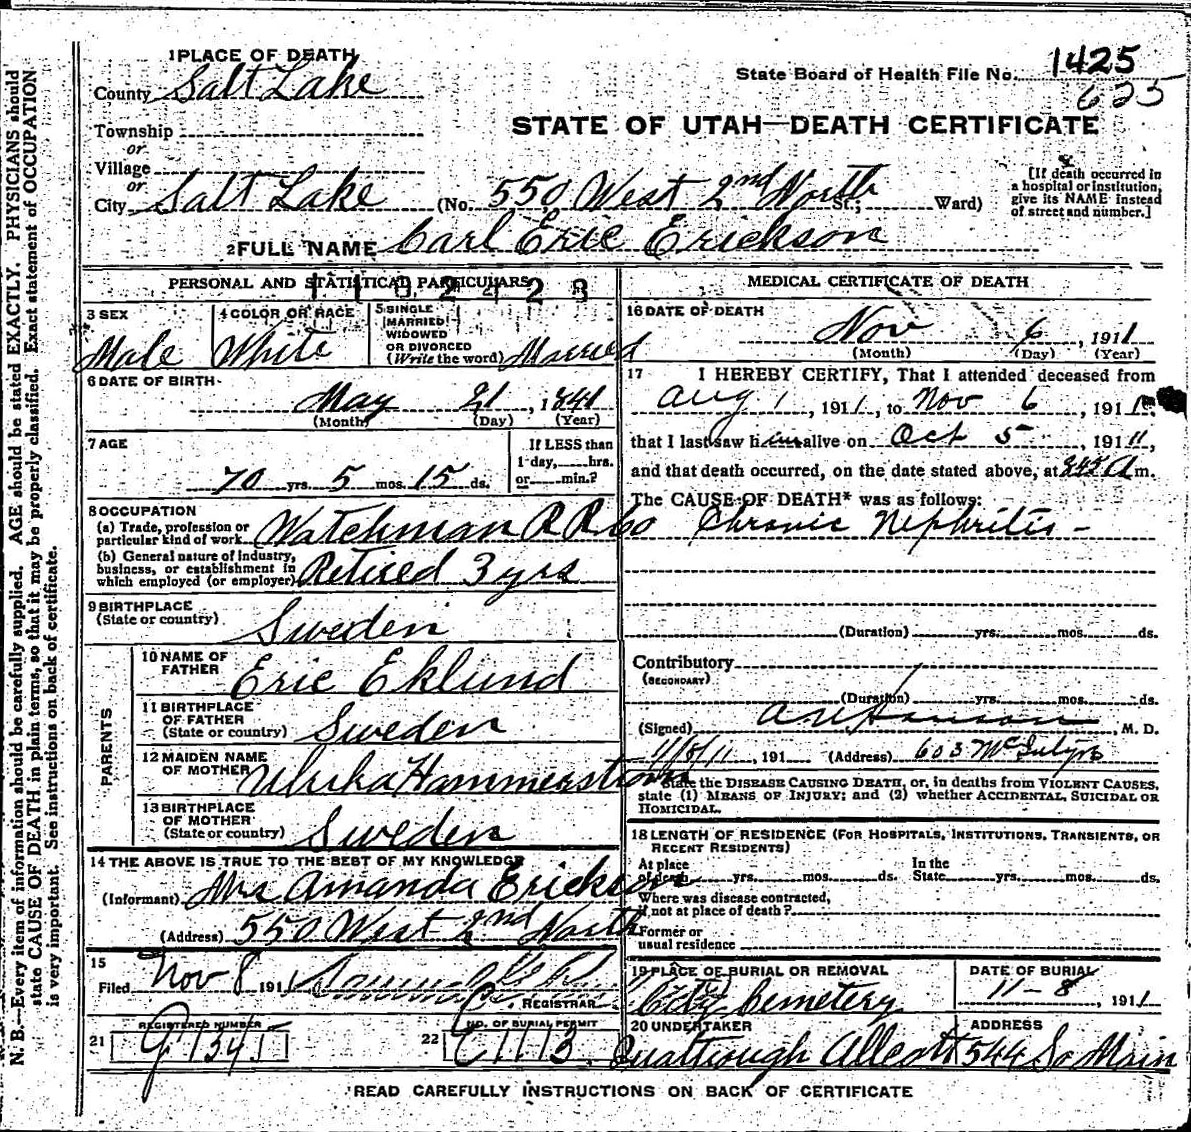 1 PLACE OF DEATH
County Salt Lake
State Board of Health File No. 1425
625
Township
or
STATE OF UTAH—DEATH CERTIFICATE
Village
or
City Salt Lake (No. 550 West 2nd North St.; Ward)
[If death occurred in
a hospital or institution,
give its NAME instead
of street and number.]
2 FULL NAME Carl Eric Erickson
PERSONAL AND STATISTICAL PARTICULARS
3 SEX
Male
4 COLOR OR RACE
White
5 SINGLE
MARRIED
WIDOWED
OR DIVORCED
(Write the word) Married
6 DATE OF BIRTH
May 21, 1841
(Month) (Day) (Year)
7 AGE
70 yrs. 5 mos. 15 ds.
If LESS than
1 day, hrs.
or min.?
8 OCCUPATION
(a) Trade, profession or
particular kind of work Watchman R R Co
(b) General nature of industry,
business, or establishment in
which employed (or employer) Retired 3 yrs
9 BIRTHPLACE
(State or country) Sweden
PARENTS
10 NAME OF
FATHER Eric Eklund
11 BIRTHPLACE
OF FATHER
(State or country) Sweden
12 MAIDEN NAME
OF MOTHER Ulrika Hammerstrom
13 BIRTHPLACE
OF MOTHER
(State or country) Sweden
14 THE ABOVE IS TRUE TO THE BEST OF MY KNOWLEDGE
(Informant) Mrs Amanda Erickson
(Address) 550 West 2nd North
15
Filed Nov 8 1911
REGISTRAR
21 REGISTERED NUMBER
22 NO. OF BURIAL PERMIT
C 1113
MEDICAL CERTIFICATE OF DEATH
16 DATE OF DEATH
Nov 6, 1911
(Month) (Day) (Year)
17 I HEREBY CERTIFY, That I attended deceased from
Aug 1, 1911, to Nov 6, 1911
that I last saw him alive on Oct 5, 1911,
and that death occurred, on the date stated above, at 845 A m.
The CAUSE OF DEATH* was as follows:
Chronic Nephritis -
(Duration) yrs. mos. ds.
Contributory
(SECONDARY)
(Duration) yrs. mos. ds.
(Signed) Hanson, M. D.
, 191 (Address) 603
State the DISEASE CAUSING DEATH, or, in deaths from VIOLENT CAUSES,
state (1) MEANS OF INJURY; and (2) whether ACCIDENTAL, SUICIDAL OR
HOMICIDAL.
18 LENGTH OF RESIDENCE (FOR HOSPITALS, INSTITUTIONS, TRANSIENTS, OR
RECENT RESIDENTS)
At place
of death yrs. mos. ds. In the
State yrs. mos. ds.
Where was disease contracted,
if not at place of death?
Former or
usual residence
19 PLACE OF BURIAL OR REMOVAL
City Cemetery
DATE OF BURIAL
11-8, 1911
20 UNDERTAKER
ADDRESS
544 So Main
READ CAREFULLY INSTRUCTIONS ON BACK OF CERTIFICATE
N. B.—Every item of information should be carefully supplied. AGE should be stated EXACTLY. PHYSICIANS should
state CAUSE OF DEATH in plain terms, so that it may be properly classified. Exact statement of OCCUPATION
is very important. See instructions on back of certificate.